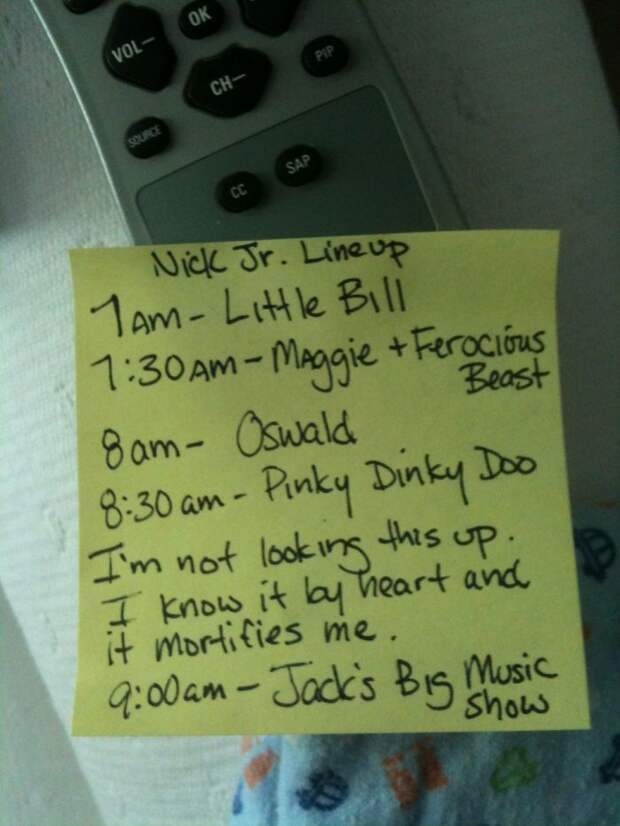 OK
VOL−
CH−
PIP
SOURCE
CC
SAP
Nick Jr. Lineup
7am- Little Bill
7:30am-Maggie + Ferocious
Beast
8am- Oswald
8:30am- Pinky Dinky Doo
I'm not looking this up.
I know it by heart and
it mortifies me.
9:00am- Jack's Big Music
Show